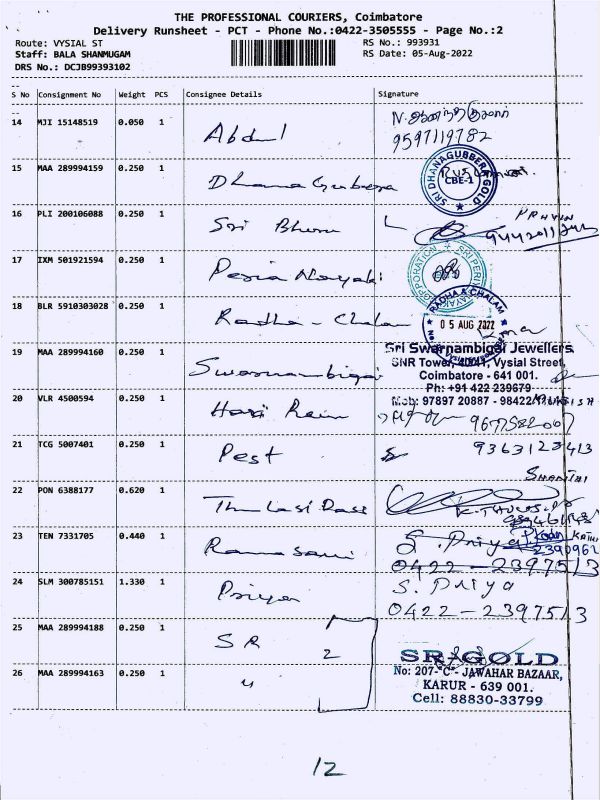 THE PROFESSIONAL COURIERS, Coimbatore
Delivery Runsheet - PCT - Phone No.:0422-3505555 - Page No.:2
Route: VYSIAL ST
Staff: BALA SHANMUGAM
DRS No.: DCJB99393102
RS No.: 993931
RS Date: 05-Aug-2022
S No Consignment No Weight PCS Consignee Details Signature
14 MJI 15148519 0.050 1 Abdul
9597119782
15 MAA 289994159 0.250 1 Dhana Gubera
SRI DHANAGUBBERA GOLD
CBE-1
16 PLI 200106088 0.250 1 Sri Bhum
PRAVIN
17 IXM 501921594 0.250 1 Peria Nayaki
18 BLR 5910303028 0.250 1 Radha - Chalam
RADHA CHALAM
05 AUG 2022
19 MAA 289994160 0.250 1 Swarnambigai
Sri Swarnambigai Jewellers
SNR Tower, Vysial Street,
Coimbatore - 641 001.
Ph: +91 422 239679
Mob: 97897 20887 - 98422
20 VLR 4500594 0.250 1 Hari Ram
21 TCG 5007401 0.250 1 Pest
9363123413
SHANTHI
22 PON 6388177 0.620 1 Thulasi Dass
23 TEN 7331705 0.440 1 Ramasami
S. Priya
0422-2397513
24 SLM 300785151 1.330 1 Priya
S. Priya
0422-2397513
25 MAA 289994188 0.250 1 SR 2
SR GOLD
No: 207-"C" - JAWAHAR BAZAAR,
KARUR - 639 001.
Cell: 88830-33799
26 MAA 289994163 0.250 1 "
12